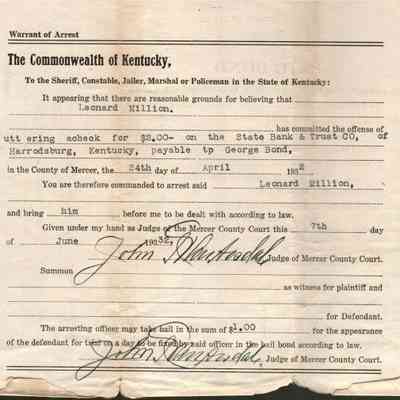 Warrant of Arrest
The Commonwealth of Kentucky,
To the Sheriff, Constable, Jailer, Marshal or Policeman in the State of Kentucky:
It appearing that there are reasonable grounds for believing that
Leonard Million.
has committed the offense of
utt ering acheck for $2.00- on the State Bank & Trust CO, of
Harrodsburg, Kentucky, payable tp George Bond,
in the County of Mercer, the 24th day of April 1932
You are therefore commanded to arrest said Leonard Million,
and bring him before me to be dealt with according to law.
Given under my hand as Judge of the Mercer County Court this 7th day
of June 19232,
Judge of Mercer County Court.
Summon
as witness for plaintiff and
for Defendant.
The arresting officer may take bail in the sum of $1.00 for the appearance
of the defendant for trial on a day to be fixed by said officer in the bail bond according to law.
John Judge of Mercer County Court.